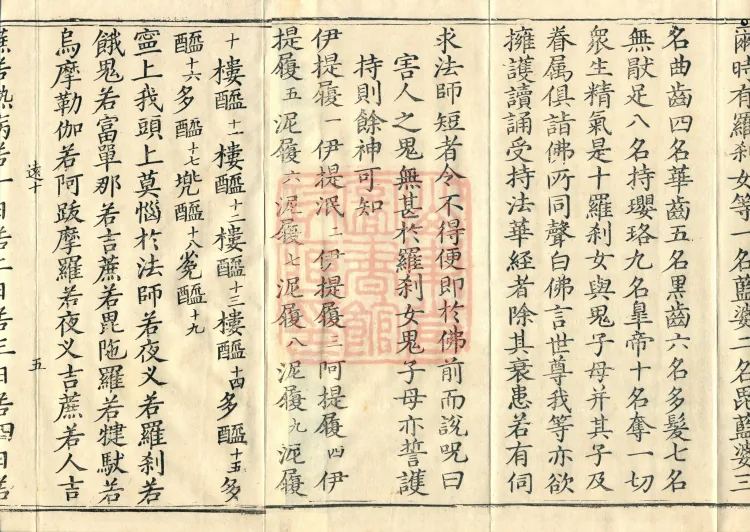 爾時有羅刹女等一名藍婆二名毘藍婆三
名曲齒四名華齒五名黒齒六名多髮七名
無猒足八名持瓔珞九名睪帝十名奪一切
衆生精氣是十羅刹女與鬼子母并其子及
眷属俱詣佛所同聲白佛言世尊我等亦欲
擁護讀誦受持法華経者除其衰患若有伺
求法師短者令不得便即於佛前而說呪曰
害人之鬼無甚於羅刹女鬼子母亦誓護
持則餘神可知
伊提履一伊提泯二伊提履三阿提履四伊
提履五泥履六泥履七泥履八泥履九泥履
十樓醯十一樓醯十二樓醯十三樓醯十四多醯十五多
醯十六多醯十七兠醯十八㝹醯十九
寧上我頭上莫惱於法師若夜叉若羅刹若
餓鬼若富單那若吉蔗若毘陁羅若犍馱若
烏摩勒伽若阿跋摩羅若夜叉吉蔗若人吉
遠十
五
蔗若熱病若一日若二日若三日若四日若